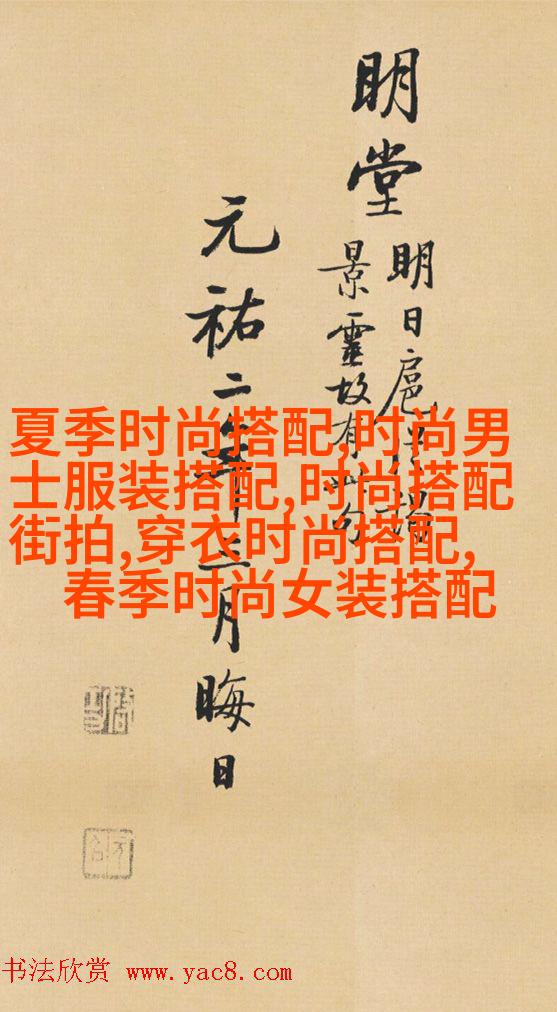 明堂
明日扈從謁
景靈故有此句
元祐二年十二月晦日
夏季时尚搭配,时尚男
士服装搭配,时尚搭配
街拍,穿衣时尚搭配,
春季时尚女装搭配
书法欣赏 www.yac8.com